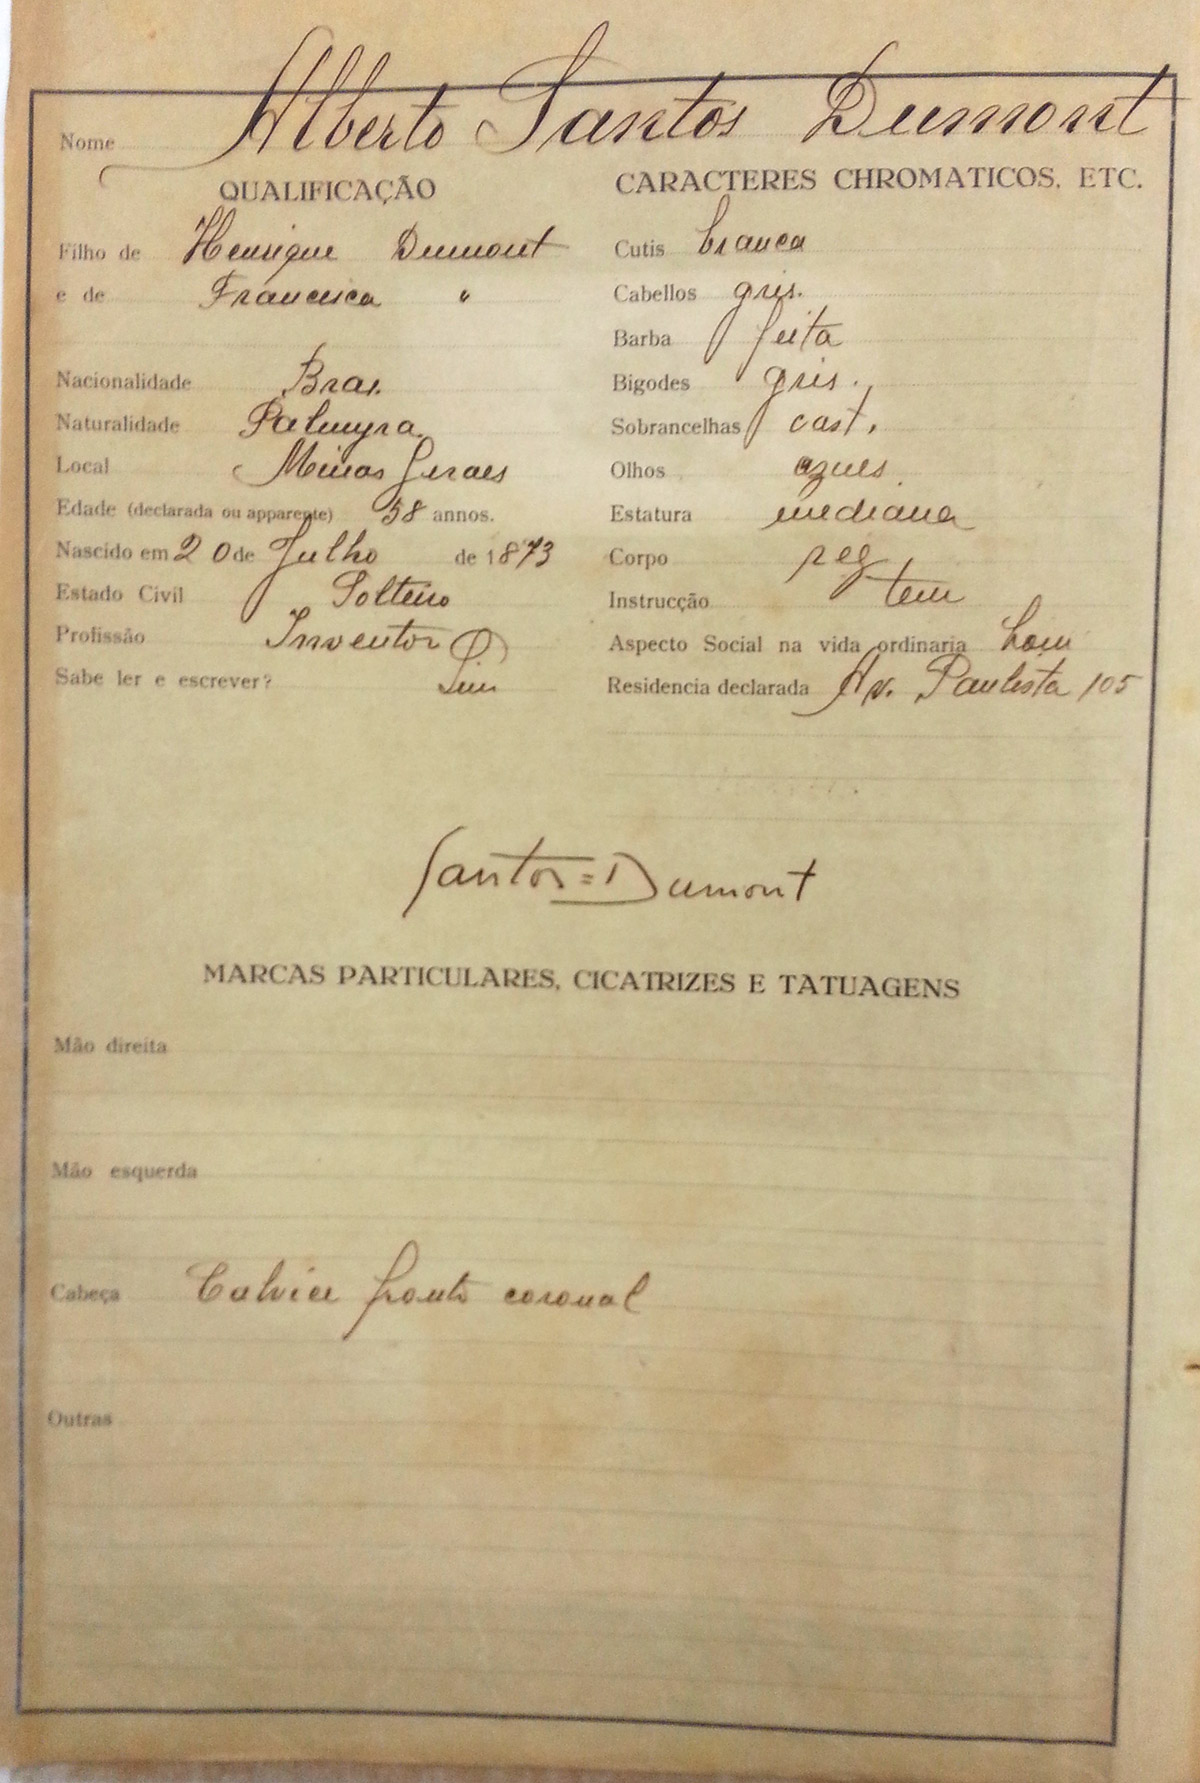 Nome Alberto Santos Dumont
QUALIFICAÇÃO
Filho de Henrique Dumont
e de Francisca "
Nacionalidade Bras.
Naturalidade Palmyra
Local Minas Geraes
Edade (declarada ou apparente) 58 annos.
Nascido em 20 de Julho de 1873
Estado Civil Solteiro
Profissão Inventor
Sabe ler e escrever? Sim
CARACTERES CHROMATICOS, ETC.
Cutis branca
Cabellos gris.
Barba feita
Bigodes gris.
Sobrancelhas cast.
Olhos azues
Estatura mediana
Corpo reg
Instrucção tem
Aspecto Social na vida ordinaria bom
Residencia declarada Av. Paulista 105
Santos=Dumont
MARCAS PARTICULARES, CICATRIZES E TATUAGENS
Mão direita
Mão esquerda
Cabeça Calvice fronto coronal
Outras